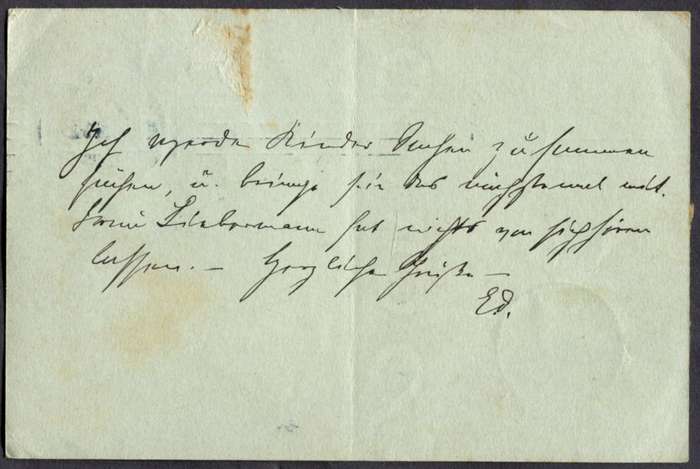 Ich werde Kinder Sachen zusammen
suchen, u. bringe sie das nächstemal mit.
Frau Liebermann hat nichts von sich hören
lassen. – Herzliche Grüße –
Ed.